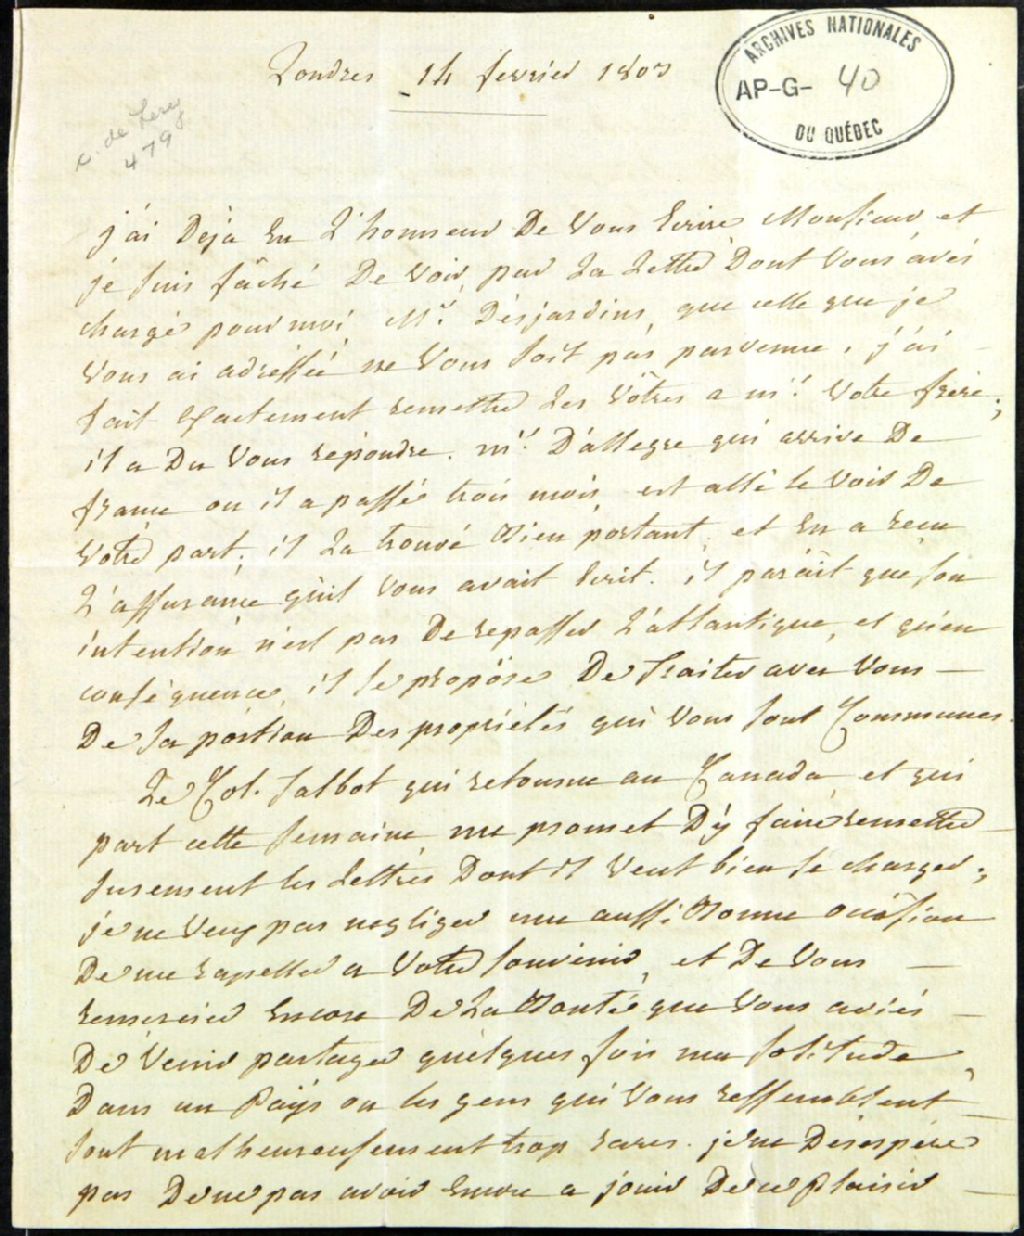 Londres 14 fevrier 1803
ARCHIVES NATIONALES
AP-G- 40
DU QUÉBEC
c. de Lery
479
j'ai Déja Eu L'honneur De Vous Ecrire Monsieur et
je suis fâché De Voir, par La Lettre Dont Vous avés
chargé pour moi Mr. Desjardins, que celle que je
Vous ai adressée ne Vous soit pas parvenue, j'ai
fait Exactement remettre Les Vôtres a mr. Votre frere;
il a Du Vous répondre. mr. D'allegre qui arrive De
france ou il a passé trois mois est allé le Voir De
Votre part, il La trouvé Bien portant, et En a recu
L'assurance qu'il Vous avait Ecrit. il paraît que son
intention n'est pas De repasser L'atlantique, et qu'en
conséquence, il se propose De traiter avec Vous
De sa portion Des propriétés qui Vous sont Communes.
Le Col. Talbot qui retourne au Canada et qui
part cette semaine, me promet D'y faire remettre
surement les Lettres Dont il Veut bien se charger;
je ne Veux pas negliger une aussi Bonne occasion
De me rapeller a Votre souvenir, et De Vous
remercier Encore De La Bonté que Vous aviés
De Venir partager quelques fois ma solitude,
Dans un Païs ou les gens qui Vous ressemblent
sont malheureusement trop rares. je ne Desespere
pas De ne pas avoir Encore a jouir De ce Plaisir